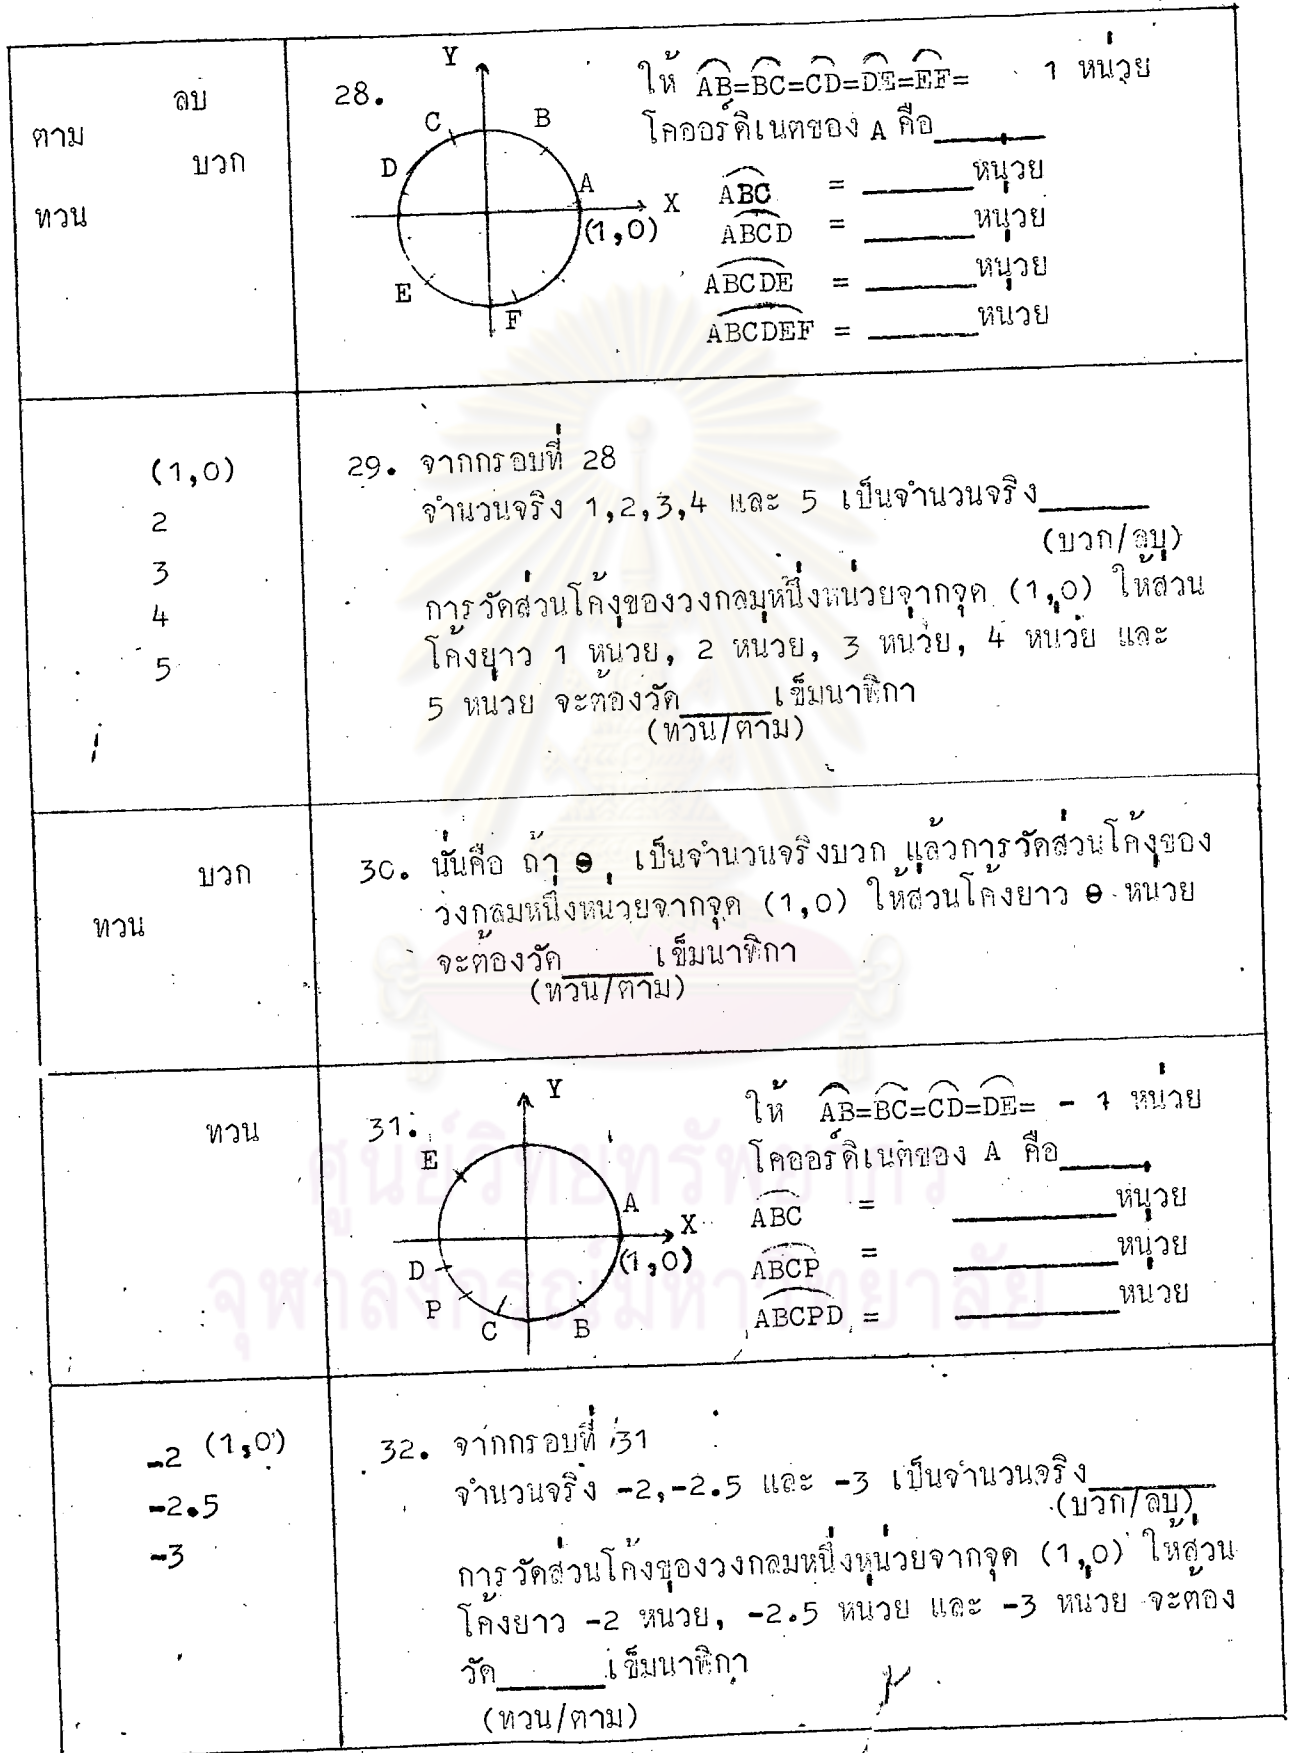 ลบ
ตาม
บวก
ทวน
28.
Y
C
B
D
A
X
(1,0)
E
F
ให้ AB=BC=CD=DE=EF= 1 หน่วย
โคออร์ดิเนตของ A คือ______
ABC = ______หน่วย
ABCD = ______หน่วย
ABCDE = ______หน่วย
ABCDEF = ______หน่วย
(1,0)
2
3
4
5
29. จากกรอบที่ 28
จำนวนจริง 1,2,3,4 และ 5 เป็นจำนวนจริง______
(บวก/ลบ)
การวัดส่วนโค้งของวงกลมหนึ่งหน่วยจากจุด (1,0) ให้ส่วน
โค้งยาว 1 หน่วย, 2 หน่วย, 3 หน่วย, 4 หน่วย และ
5 หน่วย จะต้องวัด______เข็มนาฬิกา
(ทวน/ตาม)
บวก
ทวน
30. นั่นคือ ถ้า θ เป็นจำนวนจริงบวก แล้วการวัดส่วนโค้งของ
วงกลมหนึ่งหน่วยจากจุด (1,0) ให้ส่วนโค้งยาว θ หน่วย
จะต้องวัด______เข็มนาฬิกา
(ทวน/ตาม)
ทวน
31.
Y
E
A
X
(1,0)
D
P
C
B
ให้ AB=BC=CD=DE= - 1 หน่วย
โคออร์ดิเนตของ A คือ______
ABC = ______หน่วย
ABCP = ______หน่วย
ABCPD = ______หน่วย
ศูนย์วิทยทรัพยากร
จุฬาลงกรณ์มหาวิทยาลัย
(1,0)
-2
-2.5
-3
32. จากกรอบที่ 31
จำนวนจริง -2,-2.5 และ -3 เป็นจำนวนจริง______
(บวก/ลบ)
การวัดส่วนโค้งของวงกลมหนึ่งหน่วยจากจุด (1,0) ให้ส่วน
โค้งยาว -2 หน่วย, -2.5 หน่วย และ -3 หน่วย จะต้อง
วัด______เข็มนาฬิกา
(ทวน/ตาม)